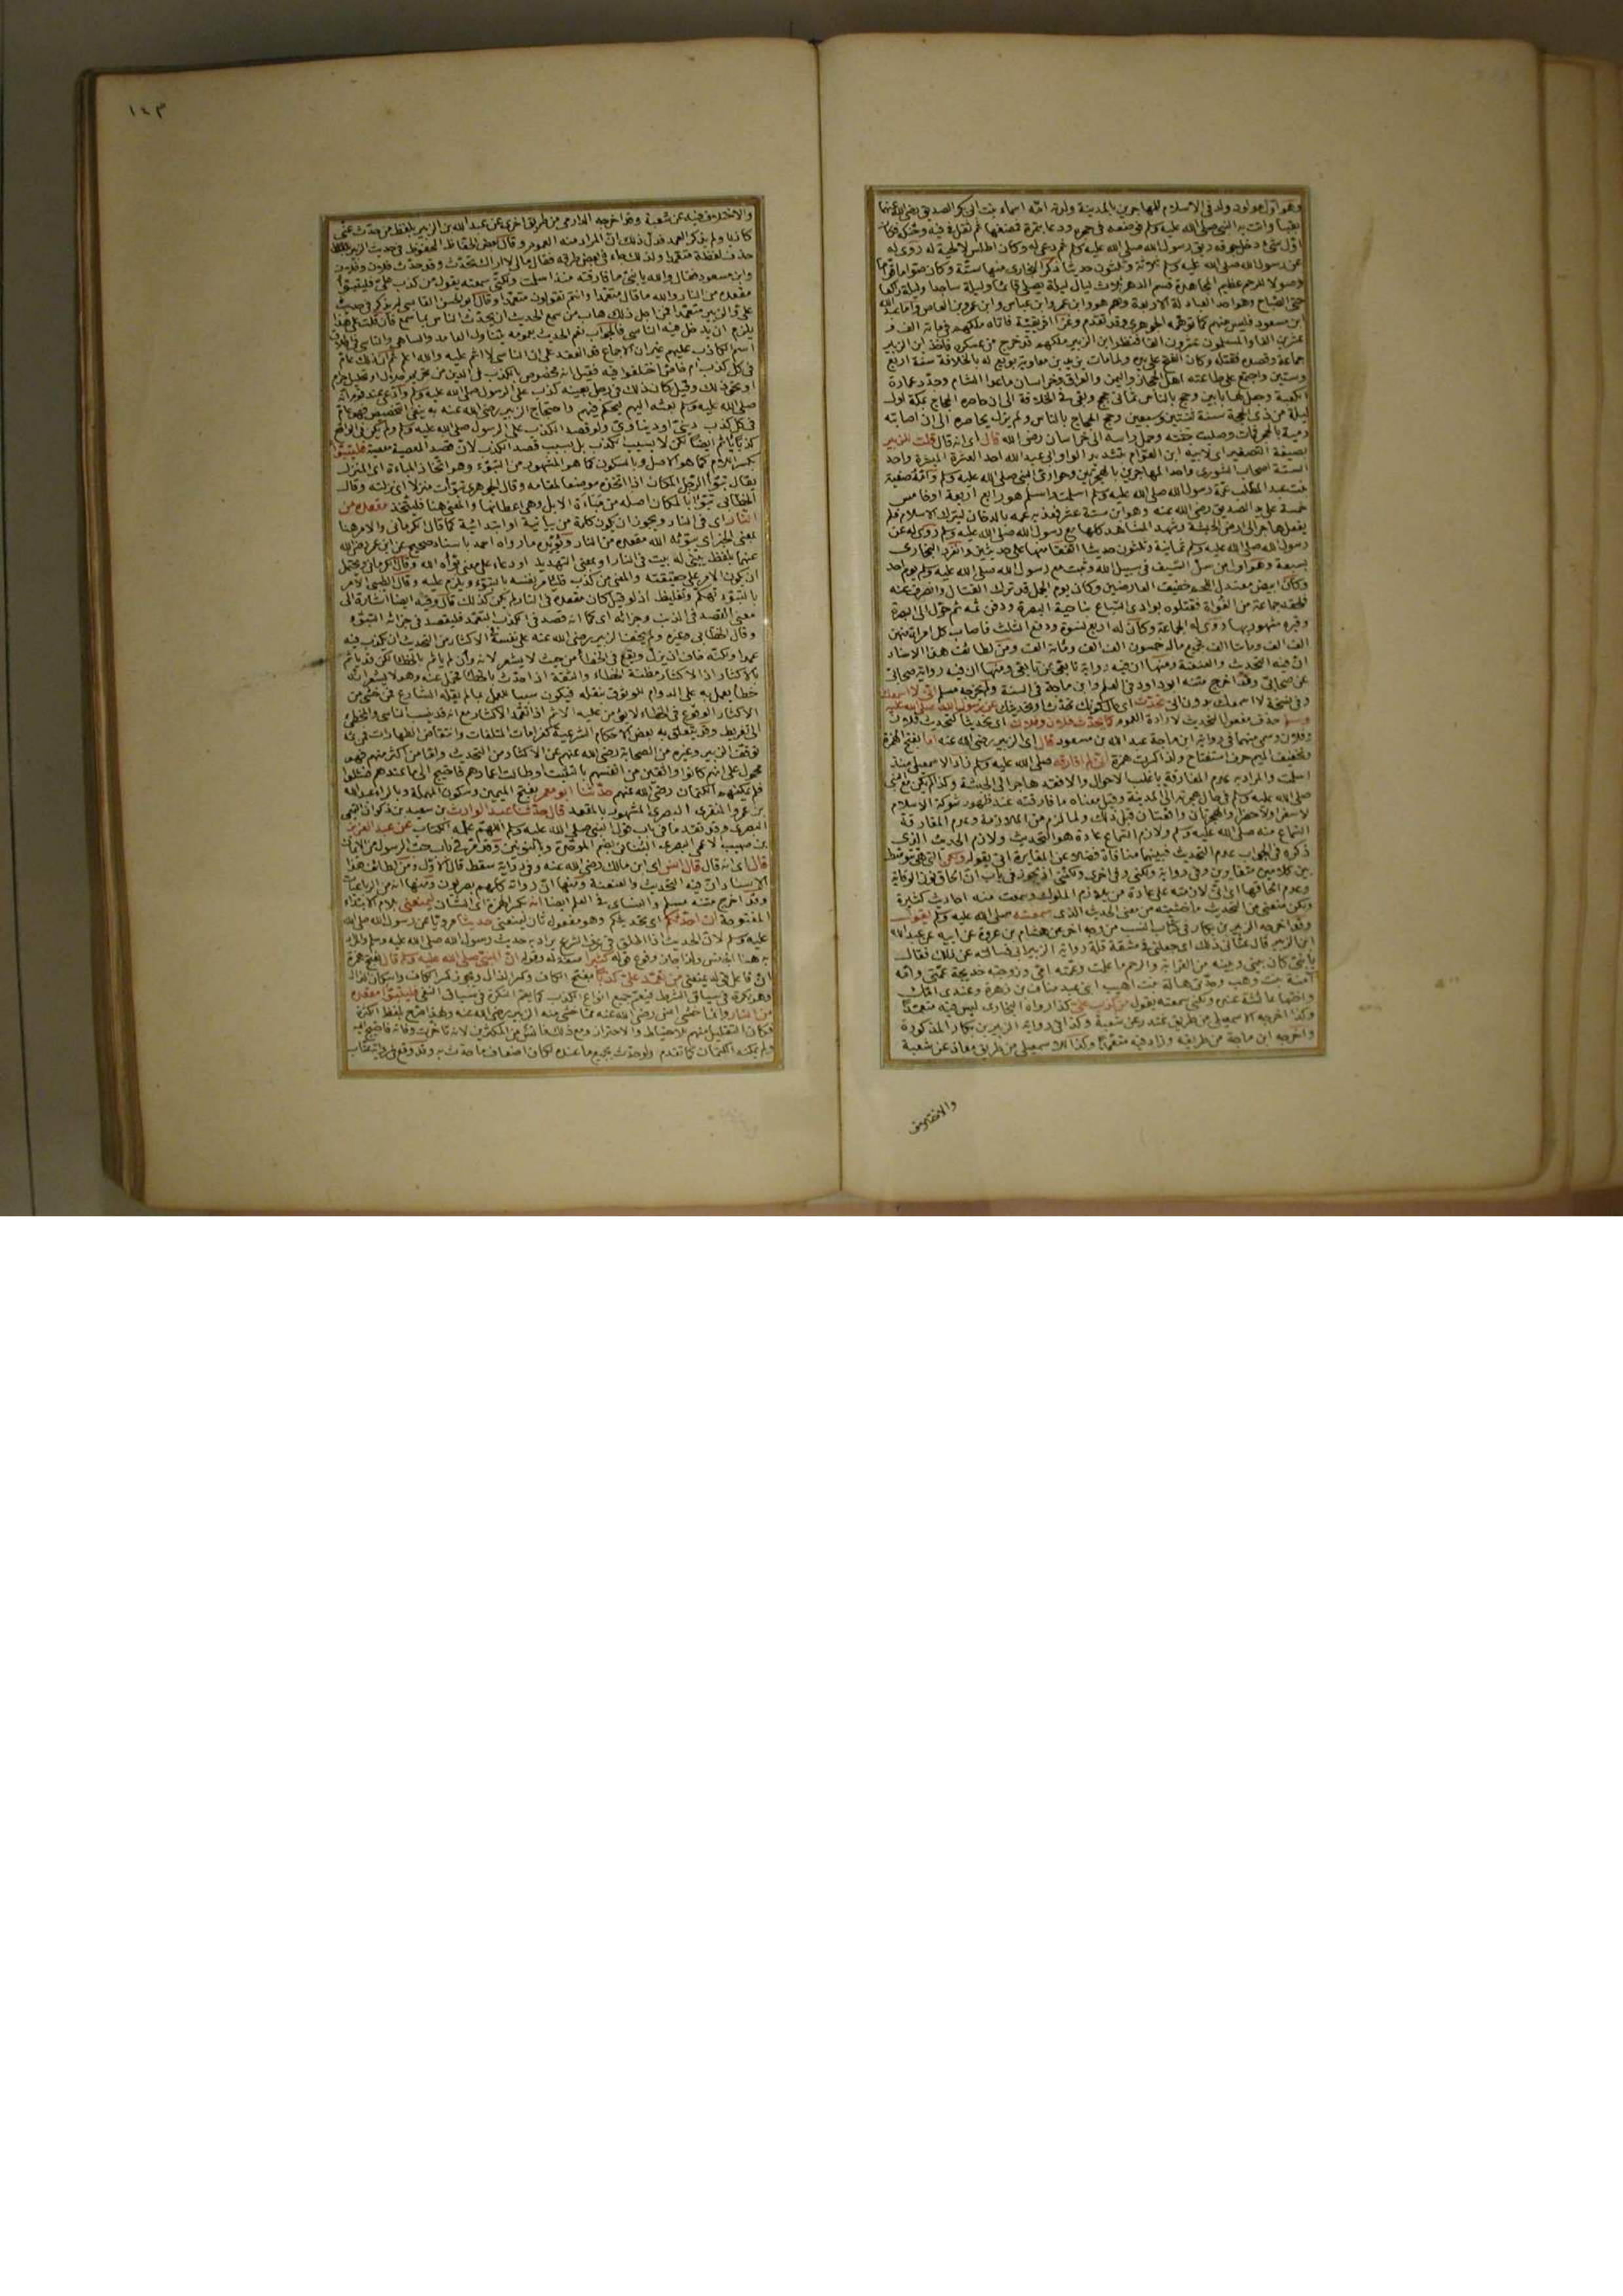 وهو اول مولود ولد فى الاسلام للمهاجرين بالمدينة ولدته امه اسماء بنت ابى بكر الصديق رضى الله عنهما
بقبا واتت به النبى صلى الله عليه وسلم فوضعه فى حجره ودعا بتمرة فمضغها ثم تفل فى فيه وحنكه فكان
اول شئ دخل جوفه ريق رسول الله صلى الله عليه وسلم ثم دعى له وكان اطلس لا لحية له روى له
عن رسول الله صلى الله عليه وسلم ثلاثة وثلثون حديثا ذكر البخارى منها ستة وكان صواما قواما
وصولا للرحم عظيم المجاهدة قسم الدهر ثلاث ليال ليلة يصلى قائما وليلة ساجدا وليلة راكعا
حتى الصباح وهو احد العبادلة الاربعة وهم هو وابن عمر وابن عباس وابن عمرو بن العاص واما عبد الله
ابن مسعود فليس منهم كما توهمه الجوهرى وقد تقدم وغزا افريقية فاتاه ملكهم فى مائة الف و
عشرين الفا والمسلمون عشرون الفا فنظر ابن الزبير ملكهم قد خرج من عسكره فاخذ ابن الزبير
جماعة وقصده فقتله وكان الفتح على يده ولما مات يزيد بن معاوية بويع له بالخلافة سنة اربع
وستين واجتمع على طاعته اهل الحجاز واليمن والعراق وخراسان ما عدا الشام وجدد عمارة
الكعبة وجعل لها بابين وحج بالناس ثمانى حجج وبقى فى الخلافة الى ان حاصره الحجاج بمكة اول
ليلة من ذى الحجة سنة ثنتين وسبعين وحج الحجاج بالناس ولم يزل يحاصره الى ان اصابته
رمية بالحجر فمات وصلبت جثته وحمل راسه الى خراسان رضى الله قال اى انه قال قلت للزبير
بصيغة التصغير اى لابيه ابن العوام بتشديد الواو ابى عبد الله احد العشرة المبشرة واحد
الستة اصحاب الشورى واحد المهاجرين بالهجرتين وحوارى النبى صلى الله عليه وسلم وامه صفية
بنت عبد المطلب عمة رسول الله صلى الله عليه وسلم اسلمت واسلم هو رابع اربعة او خامس
خمسة على يد الصديق رضى الله عنه وهو ابن ستة عشر فعذبه عمه بالدخان ليترك الاسلام فلم
يفعل هاجر الى ارض الحبشة وشهد المشاهد كلها مع رسول الله صلى الله عليه وسلم روى له عن
رسول الله صلى الله عليه وسلم ثمانية وثلثون حديثا اتفقا منها على حديثين وانفرد البخارى
بسبعة وهو اول من سل السيف فى سبيل الله وثبت مع رسول الله صلى الله عليه وسلم يوم احد
وكان ابيض معتدل اللحم خفيف العارضين وكان يوم الجمل قد ترك القتال وانصرف عنه
فلحقه جماعة من الغواة فقتلوه بوادى السباع بناحية البصرة ودفن ثمه ثم حول الى البصرة
وقبره مشهور بها روى له الجماعة وكان له اربع نسوة ودفع الثلث فاصاب كل امراة منهن
الف الف ومائتا الف فجميع ماله خمسون الف الف ومائتا الف ومن لطائف هذا الاسناد
ان فيه التحديث والعنعنة ومنها ان فيه رواية تابعى عن تابعى ومنها ان فيه رواية صحابى
عن صحابى وقد اخرج متنه ابو داود فى العلم وابن ماجة فى السنة ولم يخرجه مسلم انى لا اسمعك
وفى نسخة لا اسمعك بدون انى تحدث اى حال كونك تحدثنا وتحديثك عن رسول الله صلى الله عليه
وسلم حذف مفعول التحديث لارادة العموم كما يحدث فلان وفلان اى كتحديث فلان
وفلان وسمى منهما فى رواية ابن ماجة عبد الله بن مسعود قال اى الزبير رضى الله عنه اما بفتح الهمزة
وتخفيف الميم حرف استفتاح ولذا كسرت همزة انى لم افارقه صلى الله عليه وسلم زاد الاسمعيلى منذ
اسلمت والمراد به عدم المفارقة باغلب الاحوال والا فقد هاجر الى الحبشة وكذا لم يكن مع النبى
صلى الله عليه وسلم فى حال هجرته الى المدينة وقيل معناه ما فارقته عند ظهور شوكة الاسلام
لا سفرا ولا حضرا والهجرتان كانتا قبل ذلك ولما لزم من الملازمة وعدم المفارقة
السماع منه صلى الله عليه وسلم ولازم السماع عادة هو التحديث ولازم الحديث الذى
ذكره فى الجواب عدم التحديث فبينهما منافاة فضلا عن المغايرة اتى بقوله ولكن التى هى تتوسط
بين كلامين متغايرين وفى رواية ولكنى وفى اخرى ولكننى اذ يجوز فى باب ان الحاق نون الوقاية
وعدم الحاقها اى انى لازمته على عادة من يلازم الملوك وسمعت منه احاديث كثيرة
ولكن منعنى من التحديث ما خشيته من معنى الحديث الذى سمعته صلى الله عليه وسلم يقول
وقد اخرجه الزبير بن بكار فى كتاب النسب من وجه اخر عن هشام بن عروة عن ابيه عن عبد الله
ابن الزبير قال عنانى ذلك اى جعلنى فى مشقة قلة رواية الزبير اى فسالته عن ذلك فقال
يا بنى كان بينى وبينه من القرابة والرحم ما علمت وعمته امى وزوجته خديجة عمتى وامه
آمنة بنت وهب وجدتى هالة بنت اهيب ابنى عبد مناف بن زهرة وعندى امك
واختها عائشة عنده ولكنى سمعته يقول من كذب على كذا رواه البخارى ليس فيه متعمدا
وكذا اخرجه الاسمعيلى من طريق غندر عن شعبة وكذا فى رواية الزبير بن بكار المذكورة
واخرجه ابن ماجة من طريقه وزاد فيه متعمدا وكذا للاسمعيلى من طريق معاذ عن شعبة
والاختلاف
١٤٣
والاختلاف فيه عن شعبة وقد اخرجه الدارمى من طريق اخرى عن عبد الله بن الزبير بلفظ من حدث عنى
كاذبا ولم يذكر العمد فدل ذلك ان المراد منه العموم وقال بعض الحفاظ المحفوظ فى حديث الزبير
حذف لفظة متعمدا ولذلك جاء فى بعض طرقه فقال مالى لا اراك تحدث وقد حدث فلان وفلان
وابن مسعود فقال والله يا بنى ما فارقته منذ اسلمت ولكنى سمعته يقول من كذب على فليتبوا
مقعده من النار والله ما قال متعمدا وانتم تقولون متعمدا وقال ابو الحسن القابسى لم يذكر فى حديث
على والزبير متعمدا فمن اجل ذلك هاب من سمع الحديث ان يحدث الناس بما سمع فان قلت على هذا
يلزم ان يدخل فيه الناسى فالجواب نعم الحديث بعمومه يتناول العامد والساهى والناسى فى اطلاق
اسم الكاذب عليهم غير ان الاجماع قد انعقد على ان الناسى لا اثم عليه والله اعلم ثم ان ذلك عام
فى كل كذب ام خاص اختلفوا فيه فقيل انه مخصوص بالكذب فى الدين
او نحو ذلك وقيل كان ذلك فى رجل بعينه كذب على الرسول صلى الله عليه وسلم وادعى عند قوم انه
صلى الله عليه وسلم بعثه اليهم ليحكم فيهم واحتجاج الزبير رضى الله عنه به ينفى التخصيص فهو عام
فى كل كذب دينى او دنياوى ولو قصد الكذب على الرسول صلى الله عليه وسلم ولم يكن فى الواقع
كذبا ياثم ايضا لكن لا بسبب الكذب بل بسبب قصد الكذب لان قصد المعصية معصية فليتبوا
بكسر اللام كما هو الاصل وبالسكون كما هو المشهور من التبوء وهو اتخاذ المباءة اى المنزل
يقال تبوا الرجل المكان اذا اتخذه موضعا لمقامه وقال الجوهرى تبوات منزلا اى نزلته وقال
الخطابى تبوا بالمكان اصله من مباءة الابل وهى اعطانها والمعنى هنا فليتخذ مقعده من
النار اى فى النار ويجوز ان يكون كلمة من بيانية او ابتدائية كما قال الكرمانى والامر هنا
بمعنى الخبر اى يبوئه الله مقعده من النار ويؤيده ما رواه احمد باسناد صحيح عن ابن عمر رضى الله
عنهما بلفظ يبنى له بيت فى النار او بمعنى التهديد او دعاء على معنى بوأه الله وقال الكرمانى ويحتمل
ان يكون الامر على حقيقته والمعنى من كذب فليامر نفسه بالتبوء ويلزم عليه وقال الطيبى الامر
بالتبوء تهكم وتغليظ اذ لو قيل كان مقعده فى النار لم يكن كذلك قال وفيه ايضا اشارة الى
معنى القصد فى الذنب وجزائه اى كما انه قصد فى الكذب التعمد فليقصد فى جزائه التبوء
وقال الخطابى وغيره ولم يخف الزبير رضى الله عنه على نفسه فى الاكثار من التحديث ان يكذب فيه
عمدا ولكنه خاف ان يزل ويقع فى الخطأ من حيث لا يشعر لانه وان لم ياثم بالخطا لكن قد ياثم
بالاكثار اذ الاكثار مظنة الخطاء والثقة اذا حدث بالخطا فحمل عنه وهو لا يشعر انه
خطا يعمل به على الدوام للوثوق بنقله فيكون سببا للعمل بما لم يقله الشارع فمن خشى من
الاكثار الوقوع فى الخطاء لا يؤمن عليه الاثم اذا تعمد الاكثار
فلم يمكنهم الكتمان رضى الله عنهم حدثنا ابو معمر بفتح الميمين وسكون المهملة وبالراء عبد الله
بن عمرو المنقرى البصرى المشهور بالمقعد قال حدثنا عبد الوارث بن سعيد بن ذكوان التيمى
البصرى وقد تقدما فى باب قول النبى صلى الله عليه وسلم اللهم علمه الكتاب عن عبد العزيز
بن صهيب الاعمى البصرى البنانى بضم الموحدة وبالنونين وقد مر فى باب حب الرسول من الايمان
قال اى انه قال قال انس اى ابن مالك رضى الله عنه وفى رواية سقط قال الاول ومن لطائف هذا
الاسناد ان فيه التحديث والعنعنة ومنها ان رواته كلهم بصريون ومنها انه من الرباعيات
وقد اخرج متنه مسلم والنسائى فى العلم ايضا انه بكسر الهمزة اى الشان ليمنعنى بلام الابتداء
المفتوحة ان احدثكم اى تحديثكم وهو مفعول ثان ليمنعنى حديثا مرويا عن رسول الله صلى الله
عليه وسلم لان الحديث اذا اطلق فى عرف الشرع يراد به حديث رسول الله صلى الله عليه وسلم والمراد
به هنا الجنس ولذا جاز وقوع قوله كثيرا صفة له وقوله ان النبى صلى الله عليه وسلم قال بفتح همزة
ان فاعل قوله يمنعنى من تعمد على كذبا بفتح الكاف وكسر الذال ويجوز كسر الكاف واسكان الذال
وهو نكرة فى سياق الشرط فيعم جميع انواع الكذب كما يعم النكرة فى سياق النفى فليتبوا مقعده
من النار وانما خشى انس رضى الله عنه مما خشى منه الزبير رضى الله عنه ولهذا صرح بلفظ الكثرة
فكان التقليل منهم للاحتياط والاحتراز ومع ذلك فانس من المكثرين لانه تاخرت وفاته فاحتيج اليه
ولم يمكنه الكتمان كما تقدم ولو حدث بجميع ما عنده لكان اضعاف ما حدث به وقد وقع فى رواية عتاب